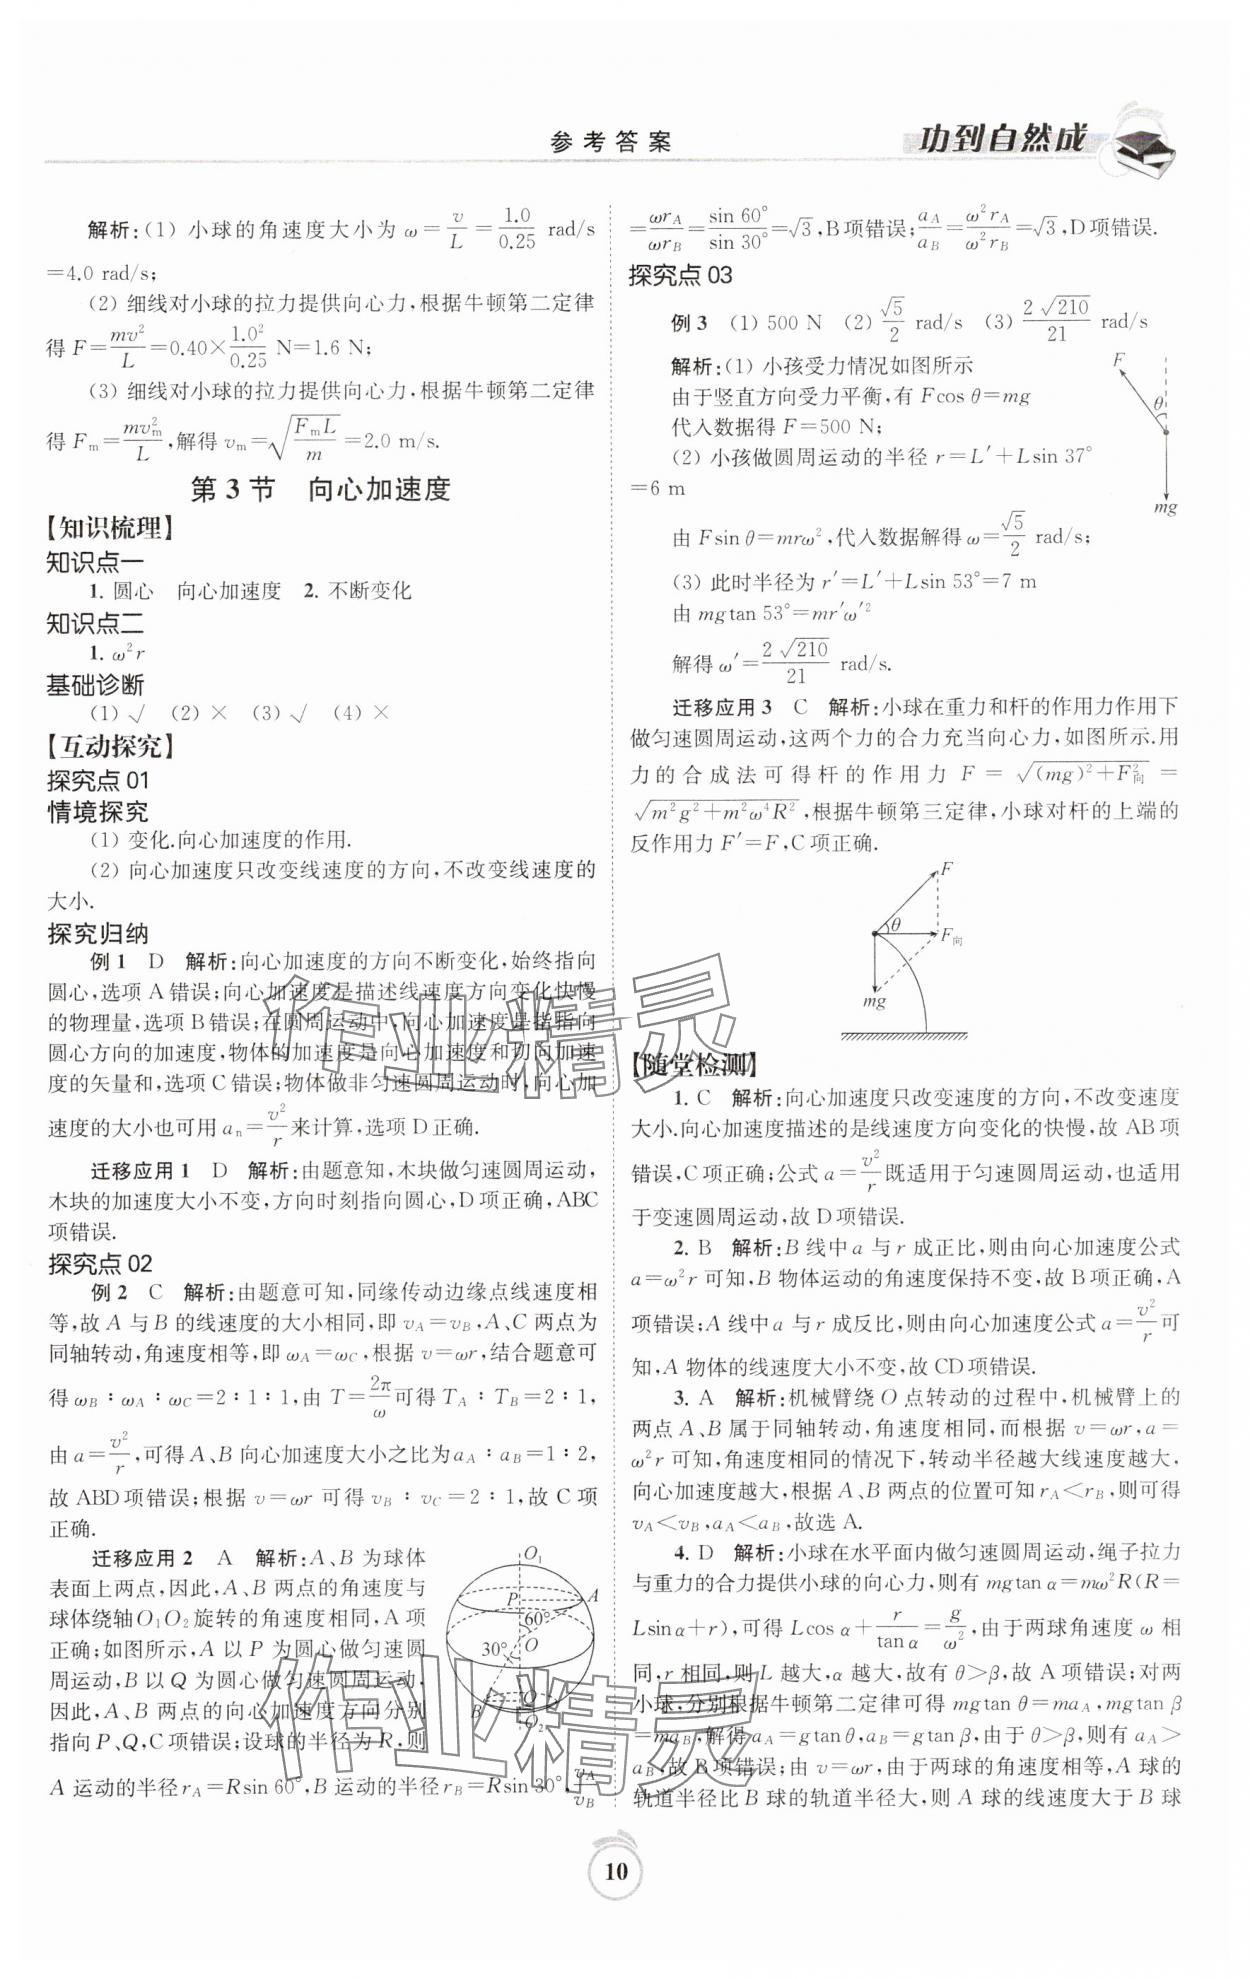 参考答案
功到自然成
解析:(1) 小球的角速度大小为 ω=v/L=1.0/0.25 rad/s
=4.0 rad/s;
(2) 细线对小球的拉力提供向心力,根据牛顿第二定律
得 F=mv²/L=0.40×1.0²/0.25 N=1.6 N;
(3) 细线对小球的拉力提供向心力,根据牛顿第二定律
得 Fₘ=mvₘ²/L,解得 vₘ=√(FₘL/m)=2.0 m/s.
第3节 向心加速度
【知识梳理】
知识点一
1. 圆心 向心加速度 2. 不断变化
知识点二
1. ω²r
基础诊断
(1) √ (2) × (3) √ (4) ×
【互动探究】
探究点 01
情境探究
(1) 变化.向心加速度的作用.
(2) 向心加速度只改变线速度的方向,不改变线速度的
大小.
探究归纳
例1 D 解析:向心加速度的方向不断变化,始终指向
圆心,选项A错误;向心加速度是描述线速度方向变化快慢
的物理量,选项B错误;在圆周运动中,向心加速度是指指向
圆心方向的加速度,物体的加速度是向心加速度和切向加速
度的矢量和,选项C错误;物体做非匀速圆周运动时,向心加
速度的大小也可用 aₙ=v²/r来计算,选项D正确.
迁移应用1 D 解析:由题意知,木块做匀速圆周运动,
木块的加速度大小不变,方向时刻指向圆心,D项正确,ABC
项错误.
探究点 02
例2 C 解析:由题意可知,同缘传动边缘点线速度相
等,故A与B的线速度的大小相同,即 v_A=v_B,A、C两点为
同轴转动,角速度相等,即 ω_A=ω_C,根据 v=ωr,结合题意可
得 ω_B∶ω_A∶ω_C=2∶1∶1,由 T=2π/ω可得 T_A∶T_B=2∶1,
由 a=v²/r,可得A、B向心加速度大小之比为 a_A∶a_B=1∶2,
故ABD项错误;根据 v=ωr 可得 v_B∶v_C=2∶1,故C项
正确.
迁移应用2 A 解析:A、B为球体
表面上两点,因此,A、B两点的角速度与
球体绕轴O₁O₂旋转的角速度相同,A项
正确;如图所示,A以P为圆心做匀速圆
周运动,B以Q为圆心做匀速圆周运动,
因此,A、B两点的向心加速度方向分别
指向P、Q,C项错误;设球的半径为R,则
A运动的半径 r_A=Rsin 60°,B运动的半径 r_B=Rsin 30°,v_A/v_B
O₁
P
A
60°
30°
O
Q
B
O₂
=ωr_A/ωr_B=sin 60°/sin 30°=√3,B项错误;a_A/a_B=ω²r_A/ω²r_B=√3,D项错误.
探究点 03
例3 (1) 500 N (2) √5/2 rad/s (3) 2√210/21 rad/s
解析:(1) 小孩受力情况如图所示
由于竖直方向受力平衡,有 Fcos θ=mg
代入数据得 F=500 N;
(2) 小孩做圆周运动的半径 r=L′+Lsin 37°
=6 m
由 Fsin θ=mrω²,代入数据解得 ω=√5/2 rad/s;
(3) 此时半径为 r′=L′+Lsin 53°=7 m
由 mgtan 53°=mr′ω′²
解得 ω′=2√210/21 rad/s.
F
θ
mg
迁移应用3 C 解析:小球在重力和杆的作用力作用下
做匀速圆周运动,这两个力的合力充当向心力,如图所示.用
力的合成法可得杆的作用力 F=√((mg)²+F向²)=
√(m²g²+m²ω⁴R²),根据牛顿第三定律,小球对杆的上端的
反作用力 F′=F,C项正确.
F
θ
F向
mg
【随堂检测】
1. C 解析:向心加速度只改变速度的方向,不改变速度
大小.向心加速度描述的是线速度方向变化的快慢,故AB项
错误,C项正确;公式 a=v²/r既适用于匀速圆周运动,也适用
于变速圆周运动,故D项错误.
2. B 解析:B线中a与r成正比,则由向心加速度公式
a=ω²r可知,B物体运动的角速度保持不变,故B项正确,A
项错误;A线中a与r成反比,则由向心加速度公式 a=v²/r可
知,A物体的线速度大小不变,故CD项错误.
3. A 解析:机械臂绕O点转动的过程中,机械臂上的
两点A、B属于同轴转动,角速度相同,而根据 v=ωr,a=
ω²r可知,角速度相同的情况下,转动半径越大线速度越大,
向心加速度越大,根据A、B两点的位置可知 r_A<r_B,则可得
v_A<v_B,a_A<a_B,故选A.
4. D 解析:小球在水平面内做匀速圆周运动,绳子拉力
与重力的合力提供小球的向心力,则有 mgtan α=mω²R(R=
Lsin α+r),可得 Lcos α+r/tan α=g/ω²,由于两球角速度ω相
同,r相同,则L越大,α越大,故有θ>β,故A项错误;对两
小球,分别根据牛顿第二定律可得 mgtan θ=ma_A,mgtan β
=ma_B,解得 a_A=gtan θ,a_B=gtan β,由于θ>β,则有 a_A>
a_B,故B项错误;由 v=ωr,由于两球的角速度相等,A球的
轨道半径比B球的轨道半径大,则A球的线速度大于B球
10
作业精灵
作业精灵